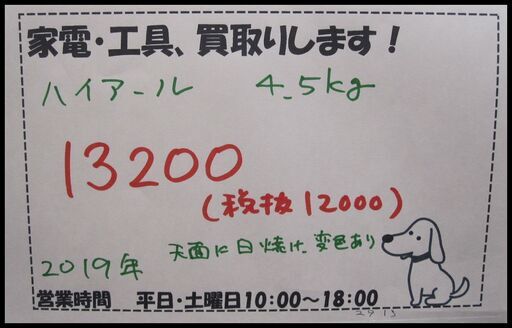 家電・工具、買取りします！
ハイアール 4.5kg
13200
(税抜12000)
天面に日焼け、変色あり
2019年
営業時間 平日・土曜日10:00～18:00
2915